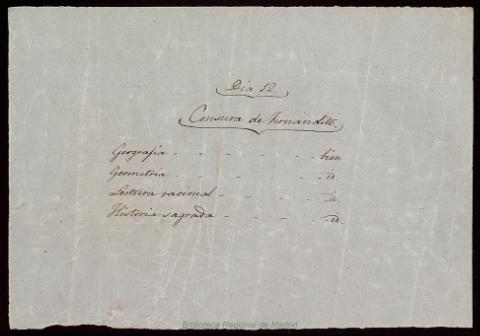 Dia 12.
Censura de Fernandito.
Geografía - - - - - - bien
Geometria - - - - - - id.
Lectura racional - - - - - id.
Historia sagrada - - - - - id.
Biblioteca Regional de Madrid